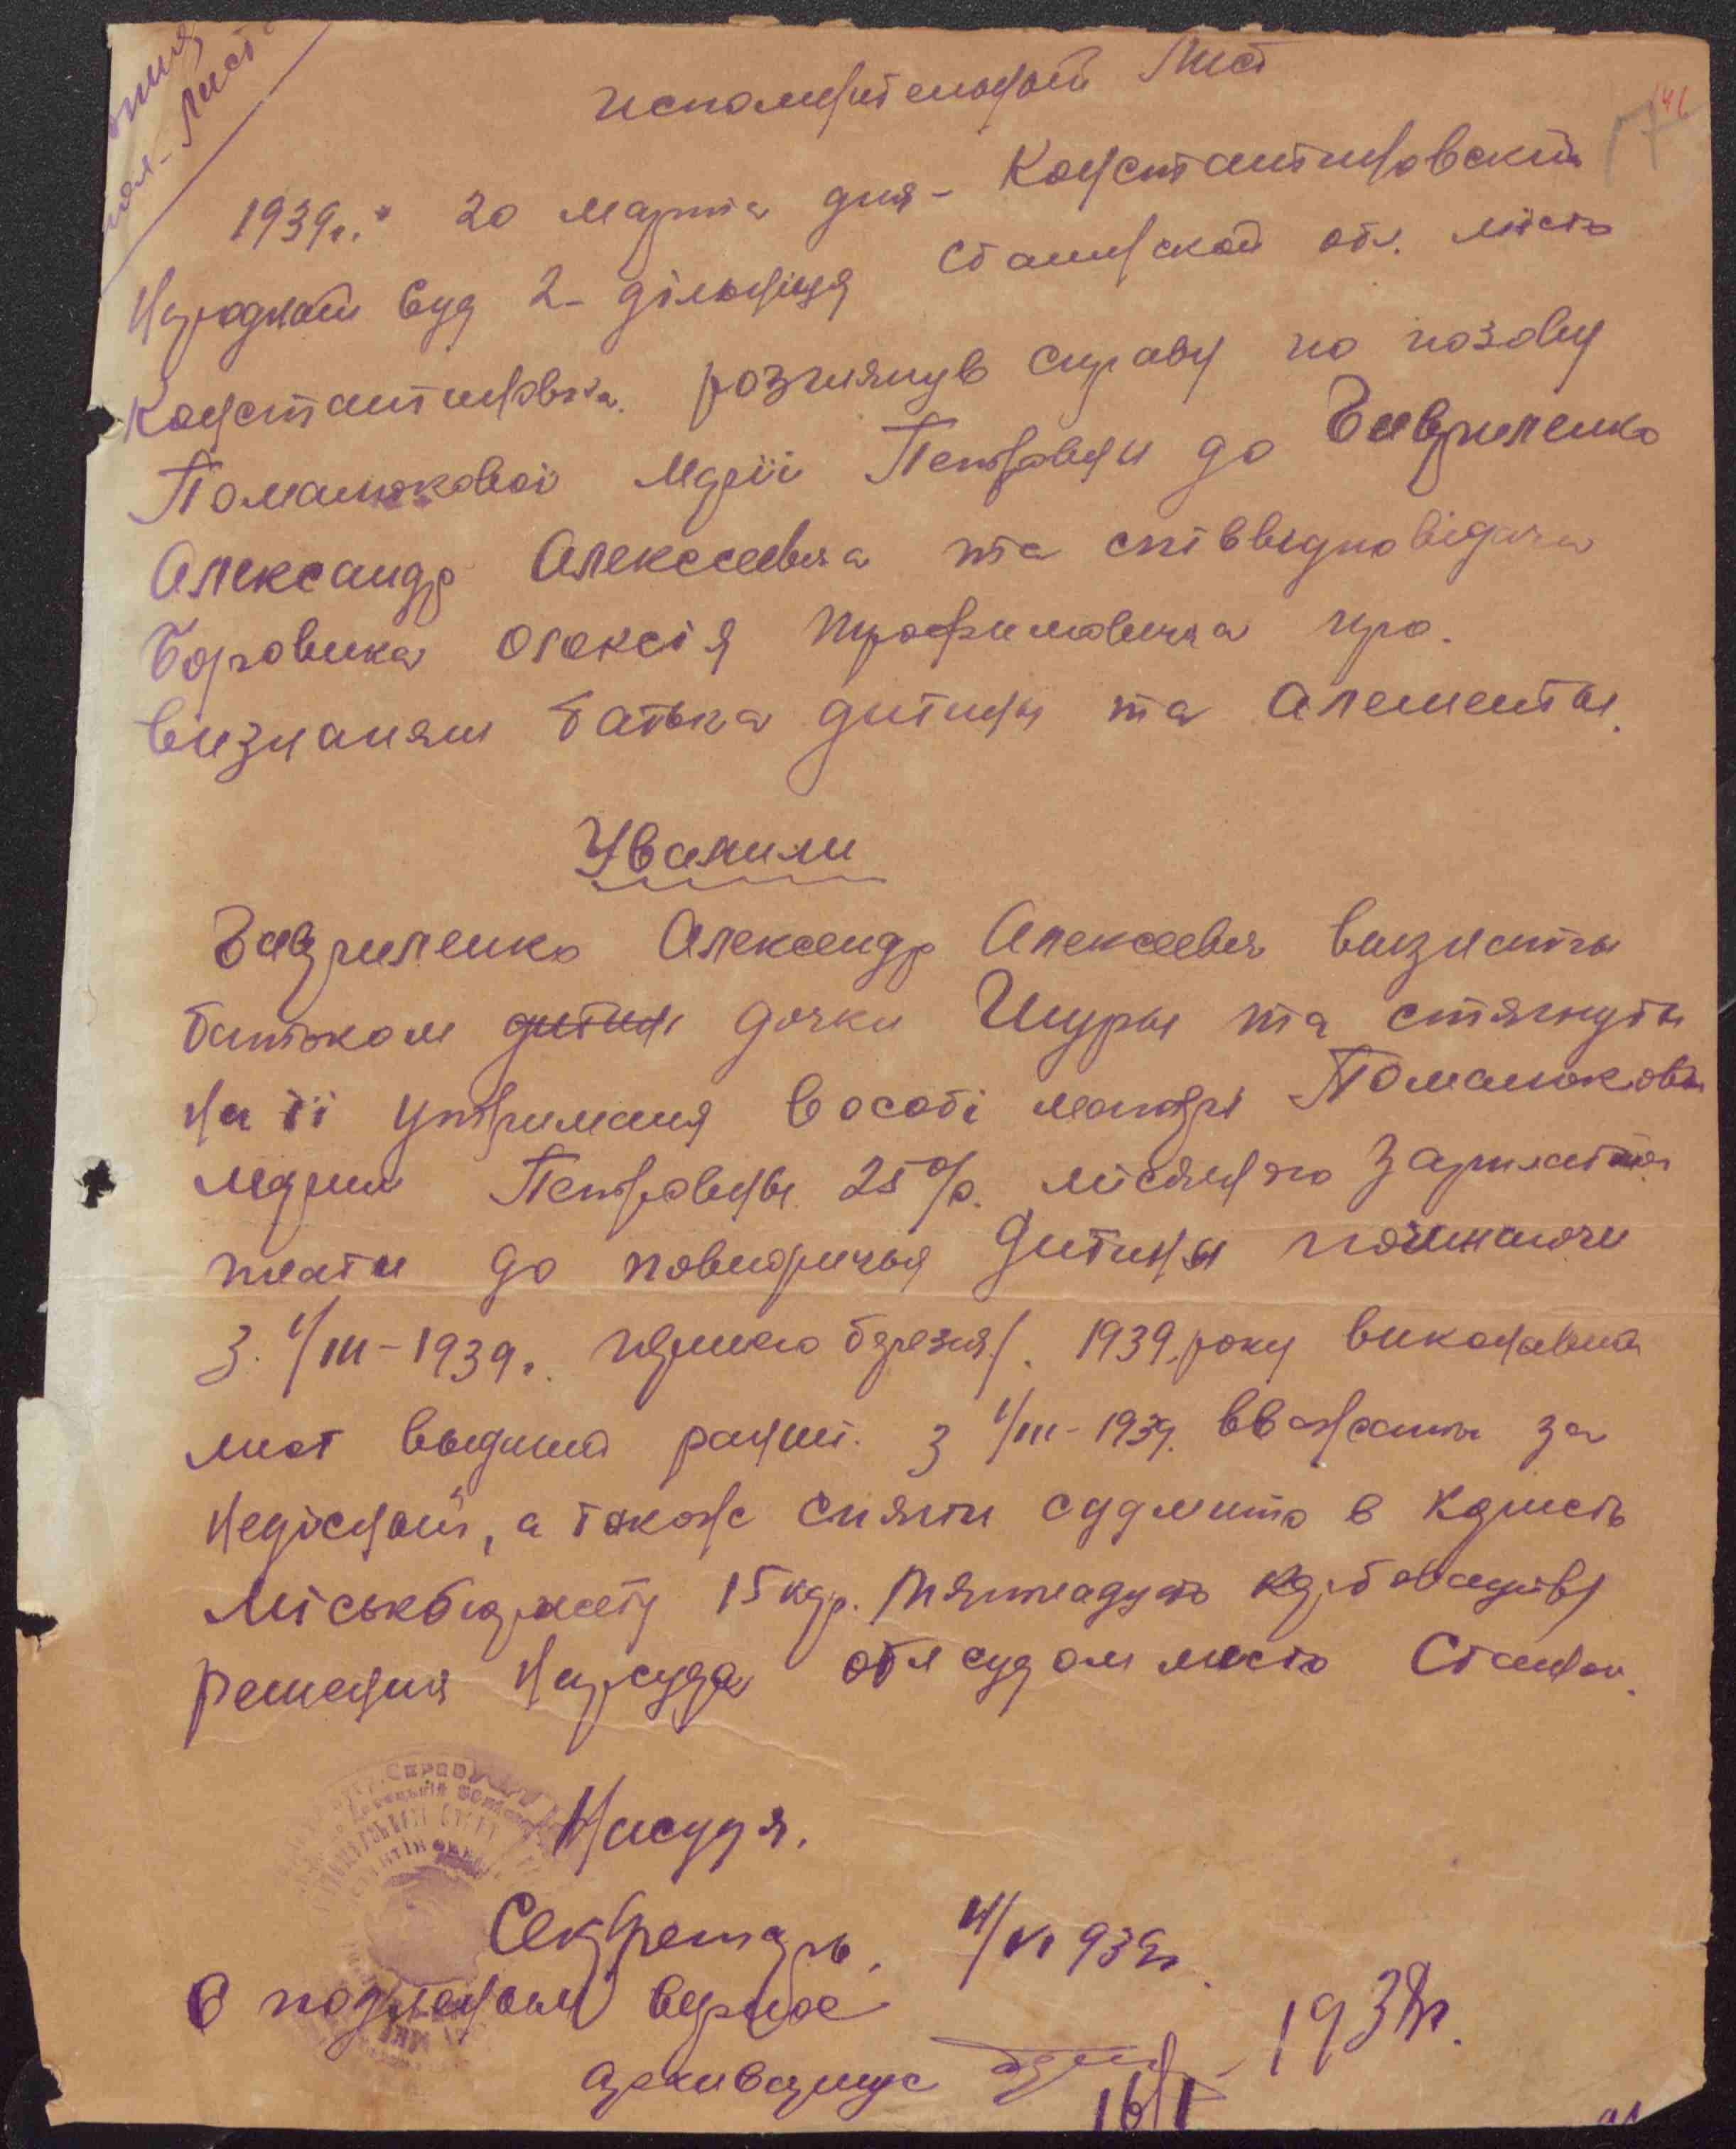 копия
исп.- Лист
исполнительный Лист
1939г. 20 марта дня - Константиновский
Народный Суд 2- дільниця Сталинской обл. місто
Константиновка. розглянув справу по позову
Поманюковоі Маріі Петровни до Гавриленко
Александр Алексеевича та співвидповідача
Боровика Олексія Трофимовича про.
визнанян батька дитины та алементы.
Ухвалили
Гавриленко Александр Алексеевич визнаты
батьком дитини дочки Шуры та стягнуты
на її утриманя в особі матері Поманюковой
Марии Петровны 25%. місячного зарплаты
платы до повноричья дитины починаючи
З. 1/III-1939г. першого березня. 1939. року виконавчий
лист выданий раніш. з 1/III-1939. вважаты за
недісный, а також снянти судмито в користь
Міськбюджету 15 кар. Пятнадцать карбованцівы
решения Нарсуда облсудом місто Сталин.
Нарсудья.
Секретарь.
С подлеными верное 11/VI 939г.
архивариус
16/I - 1939г.